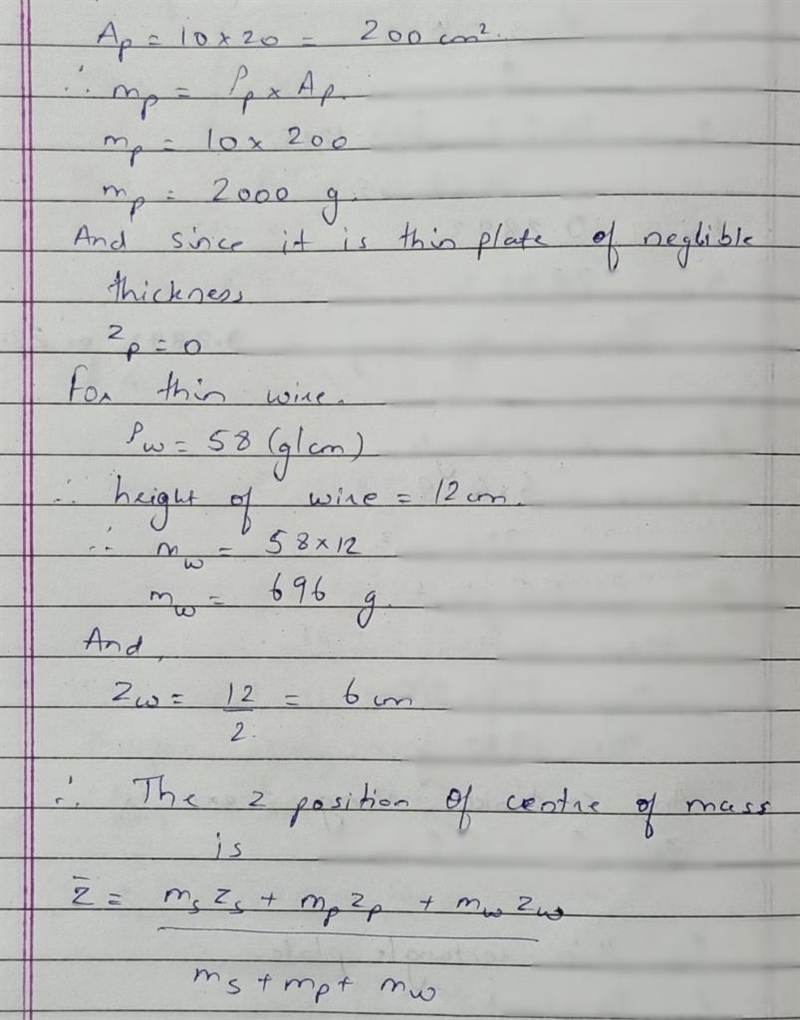 Ap = 10 × 20 = 200 cm².
∴ mp = ρp × Ap.
mp = 10 × 200
mp = 2000 g.
And since it is thin plate of neglible
thickness
zp = 0
For thin wire.
ρw = 58 (g/cm)
∴ height of wire = 12 cm.
∴ mw = 58 × 12
mw = 696 g.
And,
zw = 12/2. = 6 cm
∴ The z position of centre of mass
is
z̄ = ms zs + mp zp + mw zw
ms + mp + mw